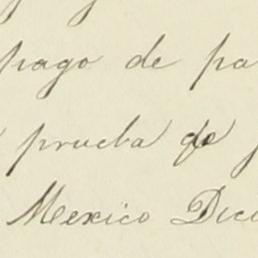 pago de pa
prueba de
Mexico Dici